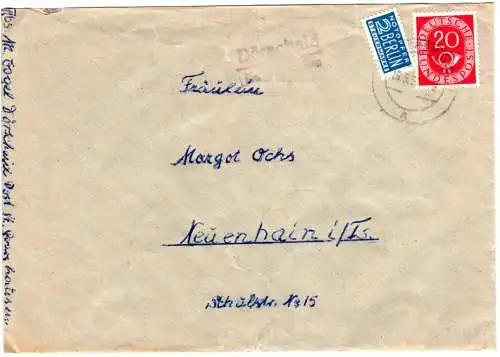 Abs. M. Vogel Dörscheid Post St. Goarshausen
Dörscheid
NOTOPFER
2 BERLIN
STEUERMARKE
DEUTSCHE
20
BUNDESPOST
Fräulein
Margot Ochs
Neuenhain i/Ts.
Schulstr. No 15